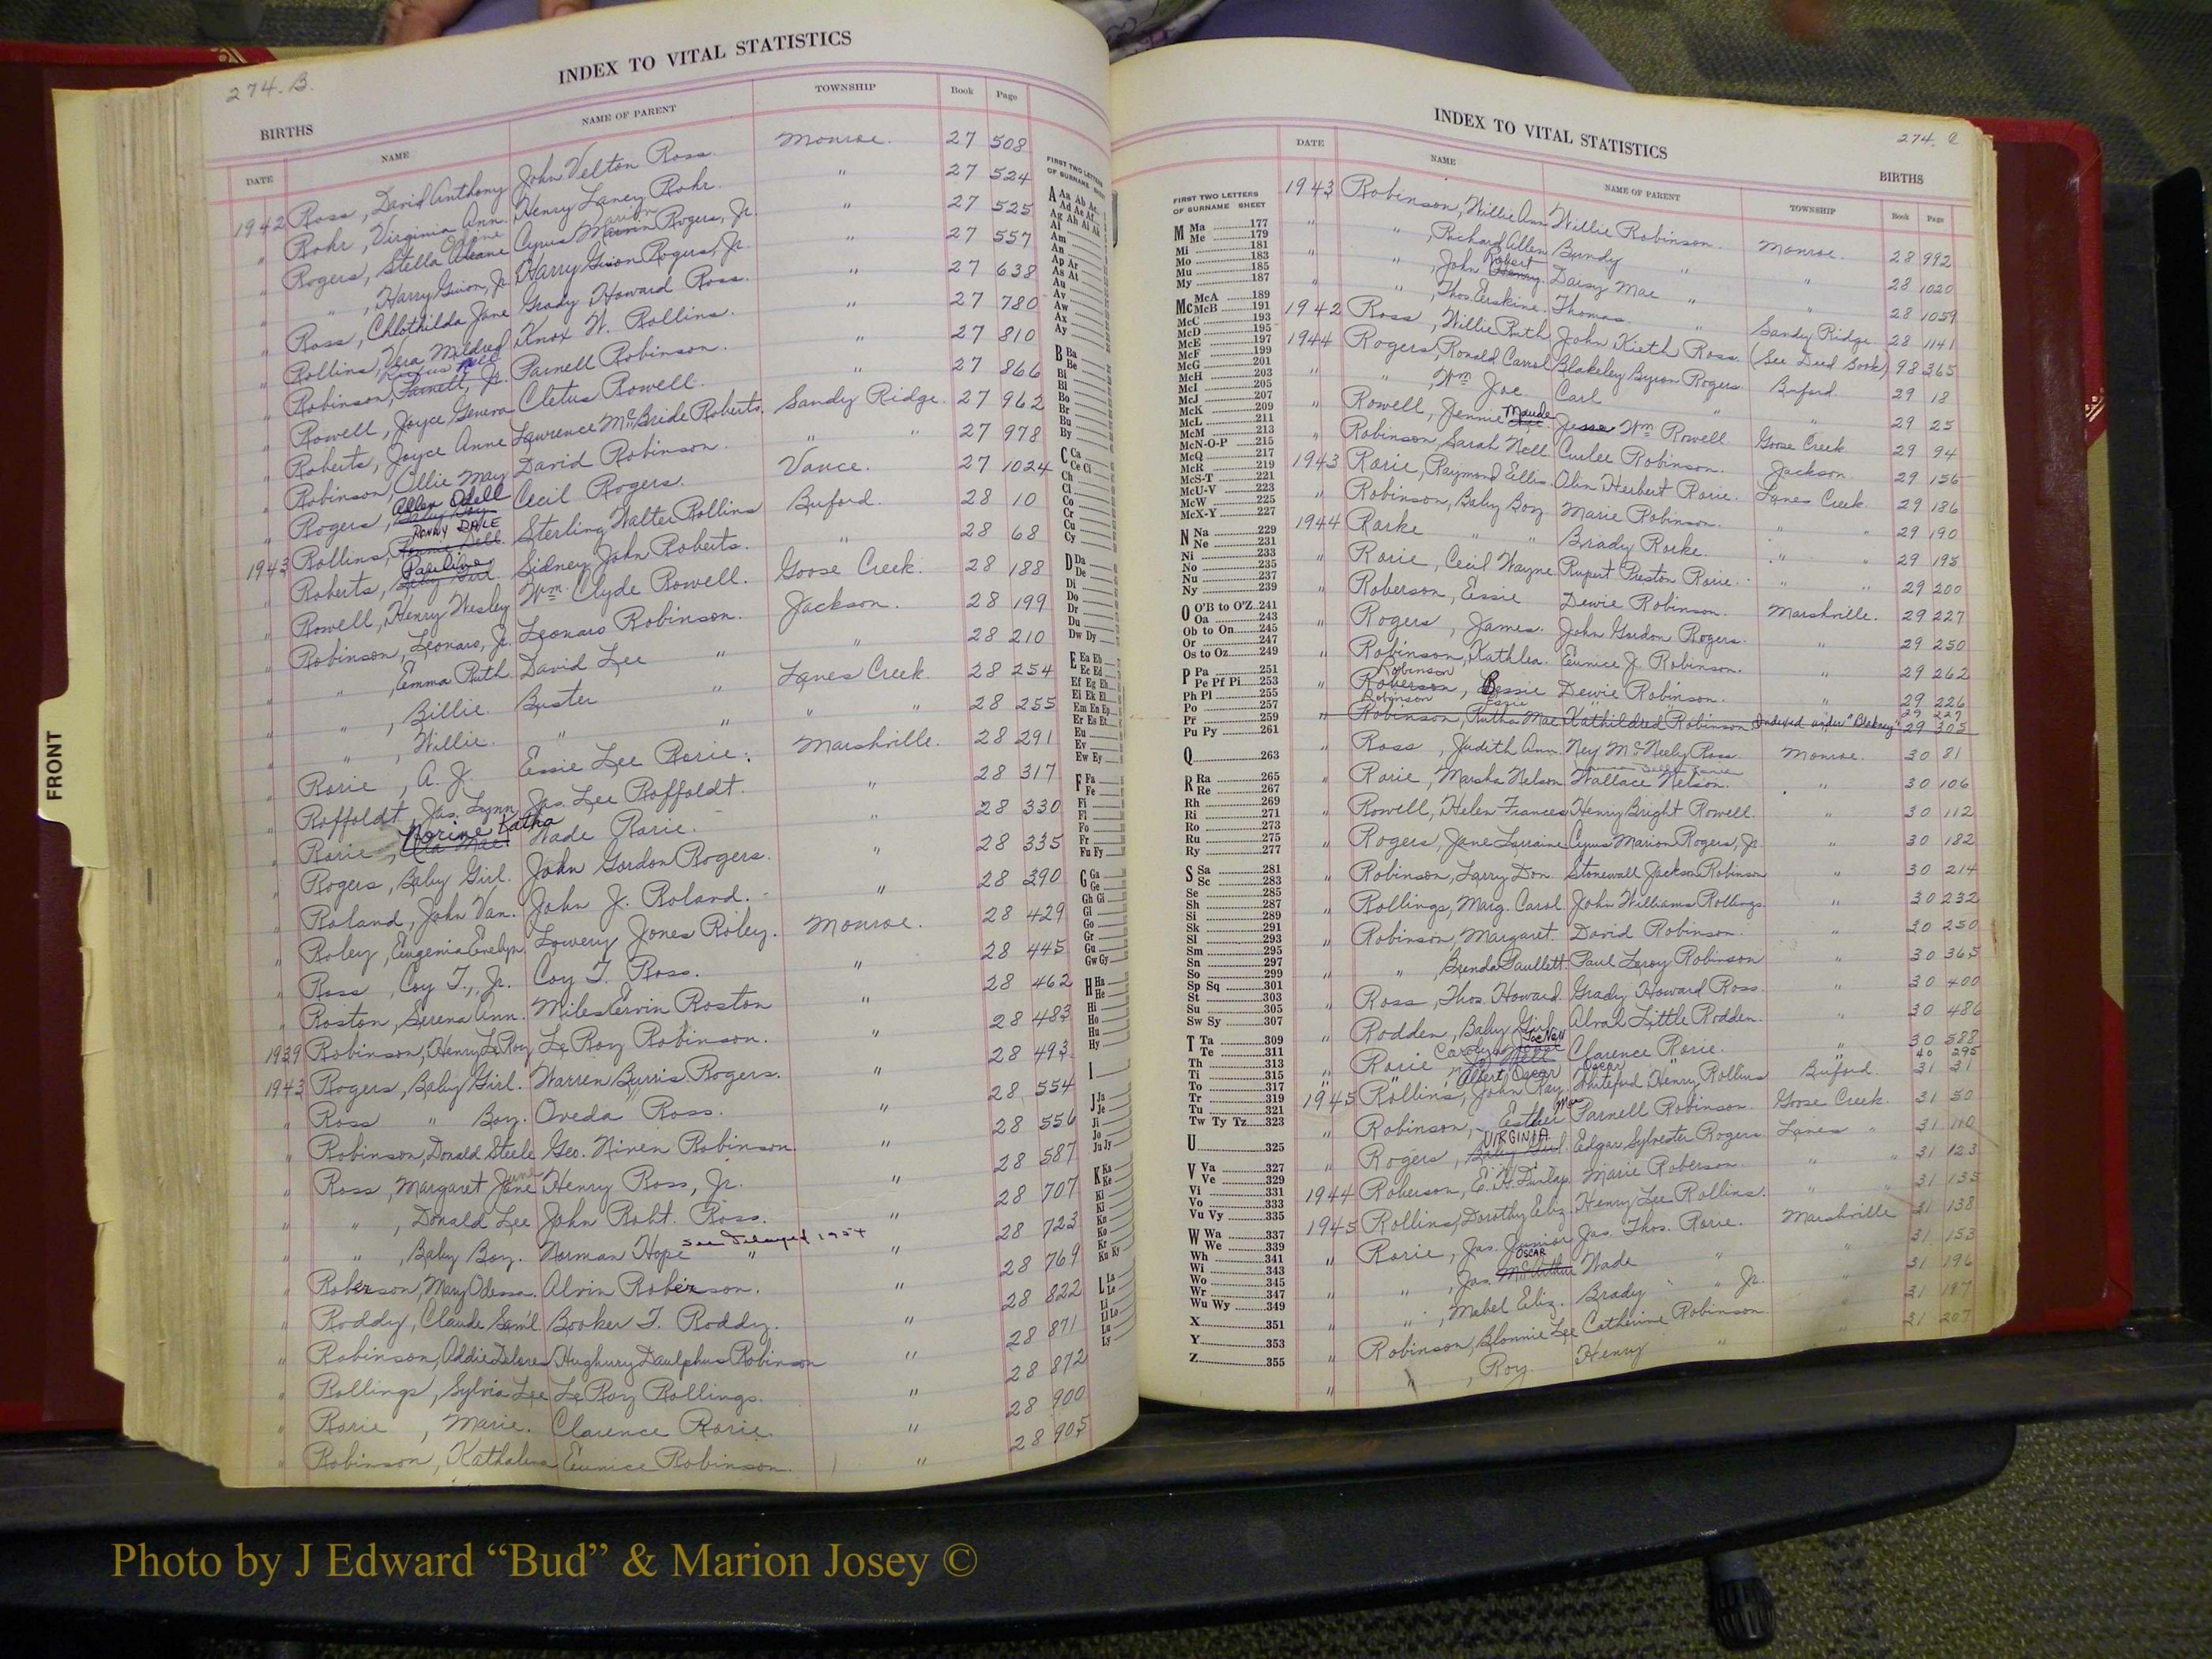 274-B.
INDEX TO VITAL STATISTICS
BIRTHS
DATE NAME NAME OF PARENT TOWNSHIP Book Page
1942 Ross, David Anthony John Velton Ross. Monroe. 27 508
" Rohr, Virginia Ann. Henry Laney Rohr. " 27 524
" Rogers, Stella Cyrus Marion Rogers, Jr. " 27 525
" " , Harry Guion, Jr. Harry Guion Rogers, Jr. " 27 557
" Ross, Chlothilda Jane Grady Howard Ross. " 27 638
" Rollins, Vera Mildred Knox W. Rollins. " 27 780
" Robinson, Parnell, Jr. Parnell Robinson. " 27 810
" Rowell, Joyce Geneva Cletus Rowell. " 27 866
" Roberts, Joyce Anne Lawrence McBride Roberts. Sandy Ridge. 27 962
" Robinson, Ollie May David Robinson. " " 27 978
" Rogers, Allen Odell Baby Boy Cecil Rogers. Vance. 27 1024
1943 Rollins, RONNY DALE Sterling Walter Rollins Buford. 28 10
" Roberts, Pauline Baby Girl Sidney John Roberts. " 28 68
" Rowell, Henry Wesley Wm. Clyde Rowell. Goose Creek. 28 188
" Robinson, Leonaro, Jr. Leonaro Robinson. Jackson. 28 199
" " , Emma Ruth. David Lee " " 28 210
" " , Billie. Buster " Lanes Creek. 28 254
" " , Willie. " " " " 28 255
" Rorie, A. J. Essie Lee Rorie. Marshville. 28 291
" Roffoldt, Jas. Lynn Jas. Lee Roffoldt. " 28 317
" Rorie, Norine Katha Wade Rorie. " 28 330
" Rogers, Baby Girl. John Gordon Rogers. " 28 335
" Roland, John Van. John J. Roland. " 28 390
" Roley, Eugenia Evelyn. Lowery Jones Roley. Monroe. 28 429
" Ross, Coy T., Jr. Coy T. Ross. " 28 445
" Roston, Serena Ann. Miles Ervin Roston " 28 462
1939 Robinson, Henry LeRoy LeRoy Robinson. " 28 483
1943 Rogers, Baby Girl. Warren Burris Rogers. " 28 493
" Ross " Boy. Oveda Ross. " 28 554
" Robinson, Donald Steele Geo. Niven Robinson. " 28 556
" Ross, Margaret Jane Henry Ross, Jr. " 28 587
" " , Donald Lee John Robt. Ross. " 28 707
" " , Baby Boy. Norman Hope " See Delayed 1954 " 28 723
" Roberson, Mary Odessa. Alvin Roberson. " 28 769
" Roddy, Claude Sam'l. Booker T. Roddy. " 28 822
" Robinson, Addie Delores Hughury Daulphus Robinson " 28 871
" Rollings, Sylvia Lee LeRoy Rollings. " 28 872
" Rorie, Marie. Clarence Rorie. " 28 900
" Robinson, Kathalena Eunice Robinson. " 28 905
FIRST TWO LETTERS
OF SURNAME SHEET
A Aa Ab Ac
Ad Ae Af
Ag Ah Ai Ak
Al
Am
An
Ap Ar
As At
Au
Av
Aw
Ax
Ay
B Ba
Be
Bi
Bl
Bo
Br
Bu
By
C Ca
Ce Ci
Ch
Cl
Co
Cr
Cu
Cy
D Da
De
Di
Do
Dr
Du
Dw Dy
E Ea Eb
Ec Ed
Ef Eg Eh
Ei Ek El
Em En Ep
Er Es Et
Eu
Ev
Ew Ey
F Fa
Fe
Fi
Fl
Fo
Fr
Fu Fy
G Ga
Ge
Gh Gi
Gl
Go
Gr
Gu
Gw Gy
H Ha
He
Hi
Ho
Hu
Hy
I
J Ja
Je
Ji
Jo
Ju Jy
K Ka
Ke
Ki
Kl
Kn
Ko
Kr
Ku Ky
L La
Le
Li
Ll Lo
Lu
Ly
FRONT
274. C
INDEX TO VITAL STATISTICS
BIRTHS
DATE NAME NAME OF PARENT TOWNSHIP Book Page
FIRST TWO LETTERS
OF SURNAME SHEET
M Ma 177
Me 179
Mi 181
Mo 183
Mu 185
My 187
Mc McA 189
McB 191
McC 193
McD 195
McE 197
McF 199
McG 201
McH 203
McI 205
McJ 207
McK 209
McL 211
McM 213
McN-O-P 215
McQ 217
McR 219
McS-T 221
McU-V 223
McW 225
McX-Y 227
N Na 229
Ne 231
Ni 233
No 235
Nu 237
Ny 239
O O'B to O'Z 241
Oa 243
Ob to On 245
Or 247
Os to Oz 249
P Pa 251
Pe Pf Pi 253
Ph Pl 255
Po 257
Pr 259
Pu Py 261
Q 263
R Ra 265
Re 267
Rh 269
Ri 271
Ro 273
Ru 275
Ry 277
S Sa 281
Sc 283
Se 285
Sh 287
Si 289
Sk 291
Sl 293
Sm 295
Sn 297
So 299
Sp Sq 301
St 303
Su 305
Sw Sy 307
T Ta 309
Te 311
Th 313
Ti 315
To 317
Tr 319
Tu 321
Tw Ty Tz 323
U 325
V Va 327
Ve 329
Vi 331
Vo 333
Vu Vy 335
W Wa 337
We 339
Wh 341
Wi 343
Wo 345
Wr 347
Wu Wy 349
X 351
Y 353
Z 355
1943 Robinson, Willie Ann Willie Robinson. Monroe. 28 992
" " , Richard Allen Bundy " " 28 1020
" " , John Robert Daisy Mae " " 28 1059
" " , Thos. Erskine. Thomas " Sandy Ridge. 28 1141
1942 Ross, Willie Ruth John Kieth Ross. (See Deed Book) 98 365
1944 Rogers, Ronald Carrol Blakeley Byron Rogers. Buford. 29 18
" " , Wm Joe. Carl " " 29 25
" Rowell, Jennie Maude Jesse Wm Rowell Goose Creek. 29 94
" Robinson, Sarah Nell Curlee Robinson. Jackson. 29 156
1943 Rorie, Raymond Ellis. Olin Herbert Rorie. Lanes Creek. 29 186
" Robinson, Baby Boy Marie Robinson. " " 29 190
1944 Rorke " " Brady Rorke. " " 29 195
" Rorie, Cecil Wayne Rupert Preston Rorie. " " 29 200
" Roberson, Essie Dewie Robinson. Marshville. 29 227
" Rogers, James. John Gordon Rogers. " 29 250
" Robinson, Kathlea. Eunice J. Robinson. " 29 262
" Robinson Roberson, Bessie Dewie Robinson. " 29 226
Robinson Essie " " 29 227
" Robinson, Rutha Mae Kathildred Robinson Indexed under "Blakney" 29 305
" Ross, Judith Ann. Ney McNeely Ross Monroe. 30 81
" Rorie, Marsha Nelson Wallace Nelson. " 30 106
" Rowell, Helen Frances Henry Bright Rowell. " 30 112
" Rogers, Jane Larraine Cyrus Marion Rogers, Jr. " 30 182
" Robinson, Larry Don. Stonewall Jackson Robinson " 30 214
" Rollings, Marg. Carol John Williams Rollings. " 30 232
" Robinson, Margaret. David Robinson. " 30 250
" " Brenda Paullett Paul Leroy Robinson " 30 365
" Ross, Thos. Howard. Grady Howard Ross. " 30 400
" Rodden, Baby Girl Alvah Little Rodden. " 30 486
" Rorie Carolyn Clarence Rorie. " 30 588
" " , Albert Oscar Oscar " 40 295
1945 Rollins, John Ray. Whiteford Henry Rollins Buford. 31 31
" Robinson, Esther Mae Parnell Robinson. Goose Creek. 31 50
" Rogers, VIRGINIA Baby Girl. Edgar Sylvester Rogers. Lanes " 31 110
1944 Roberson, E. H. Dunlap Marie Roberson. " " 31 123
1945 Rollins, Dorothy Eliz. Henry Lee Rollins. " " 31 135
" Rorie, Jas. Junior Jas. Thos. Rorie. Marshville 31 138
" " , Jas. OSCAR Wade " " 31 153
" " , Mabel Eliz. Brady " Jr. " 31 196
" Robinson, Blonnie Lee Catherine Robinson. " 31 197
" " , Roy. Henry " " 31 207
Photo by J Edward “Bud” & Marion Josey ©